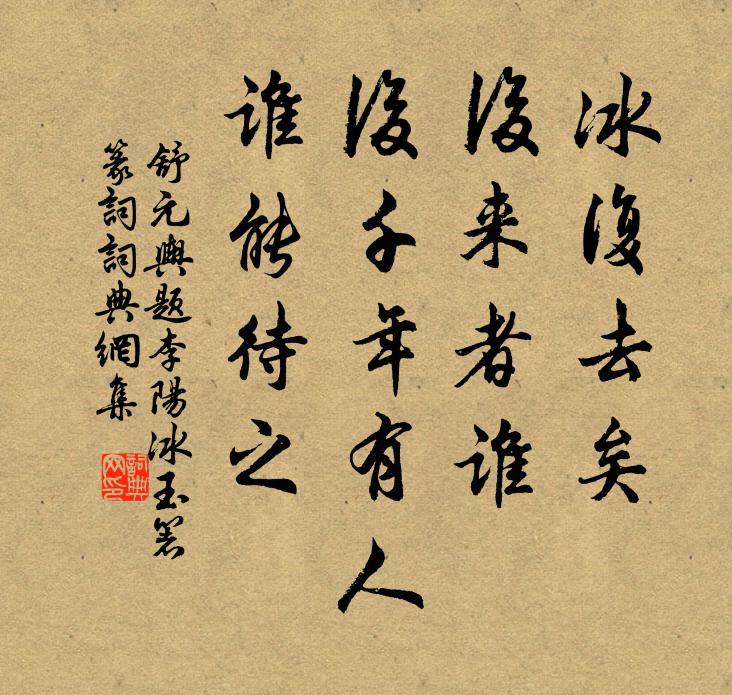 冰復去矣
後来者谁
後千年有人
谁能待之
舒元輿题李陽冰玉箸
篆詞詞典網集
詞典网印